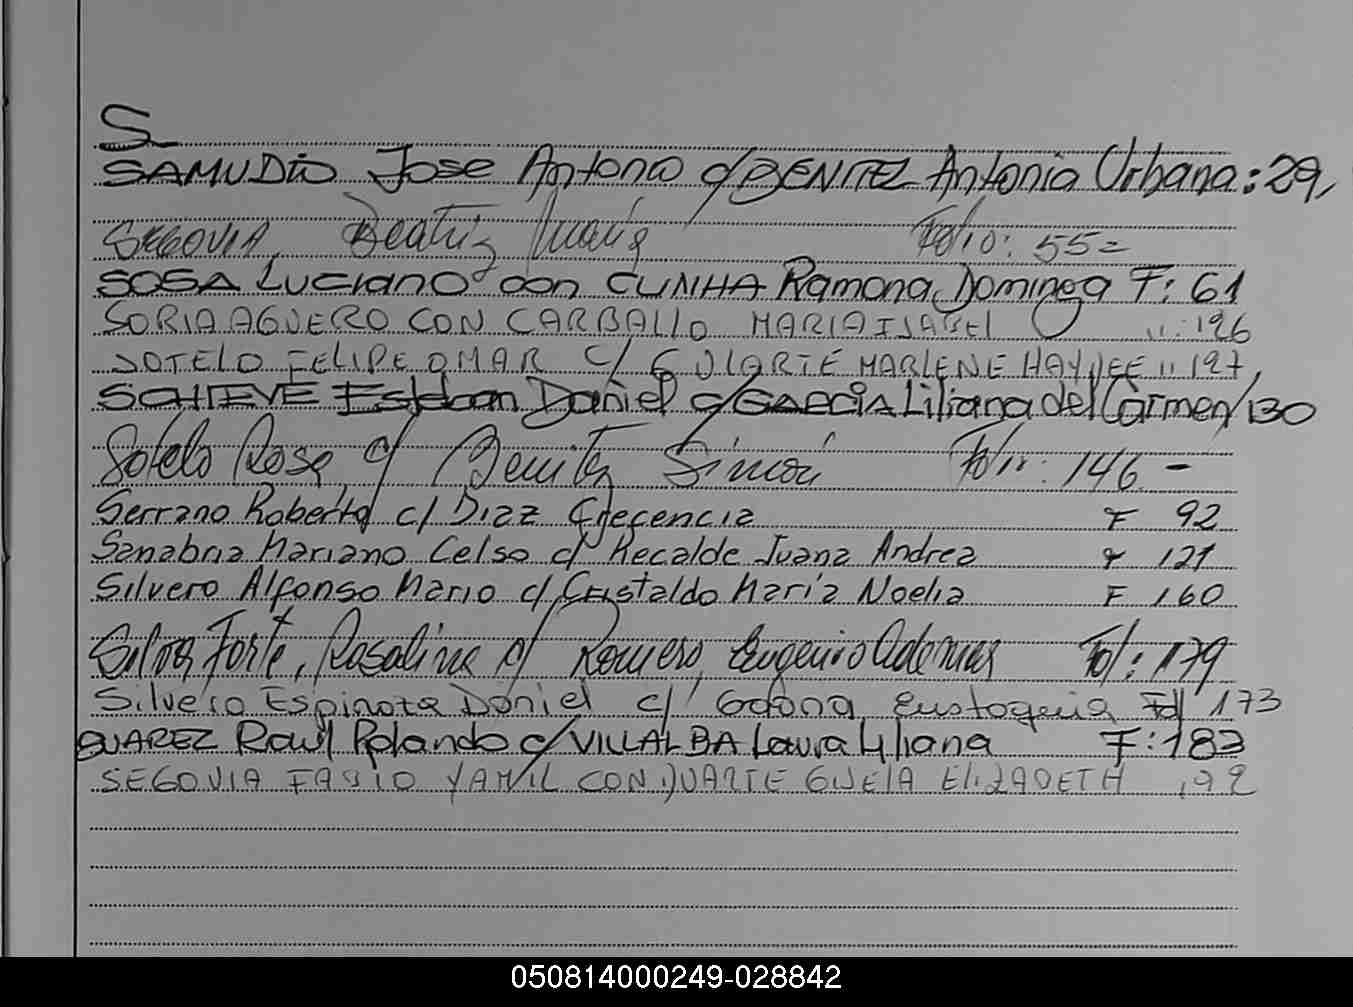 S
SAMUDIO Jose Antonio c/ BENITEZ Antonia Urbana: 29,
SEGOVIA, Beatriz María Folio: 55=
SOSA Luciano con CUNHA Ramona Dominga F: 61
SORIA AGUERO CON CARBALLO MARIA ISABEL " : 126
SOTELO FELIPE OMAR C/ GULARTE MARLENE HAYDEE " 127,
SCHIEVE Esteban Daniel c/ GARCIA Liliana del Carmen/130
Sotelo Rosa c/ Benitez Simón Folio: 146 -
Serrano Roberto c/ Diaz Crecencia F 92
Sanabria Mariano Celso c/ Recalde Juana Andrea F 121
Silvero Alfonso Mario c/ Cristaldo Maria Noelia F 160
Silva Forte, Rosalina c/ Romero, Eugenio Ademar Fol: 179
Silvero Espinoza Daniel c/ Eustaquia Fol 173
SUAREZ Raul Rolando c/ VILLALBA Laura Liliana F: 183
SEGOVIA FABIO YAMIL CON DUARTE GISELA ELIZABETH 192
050814000249-028842